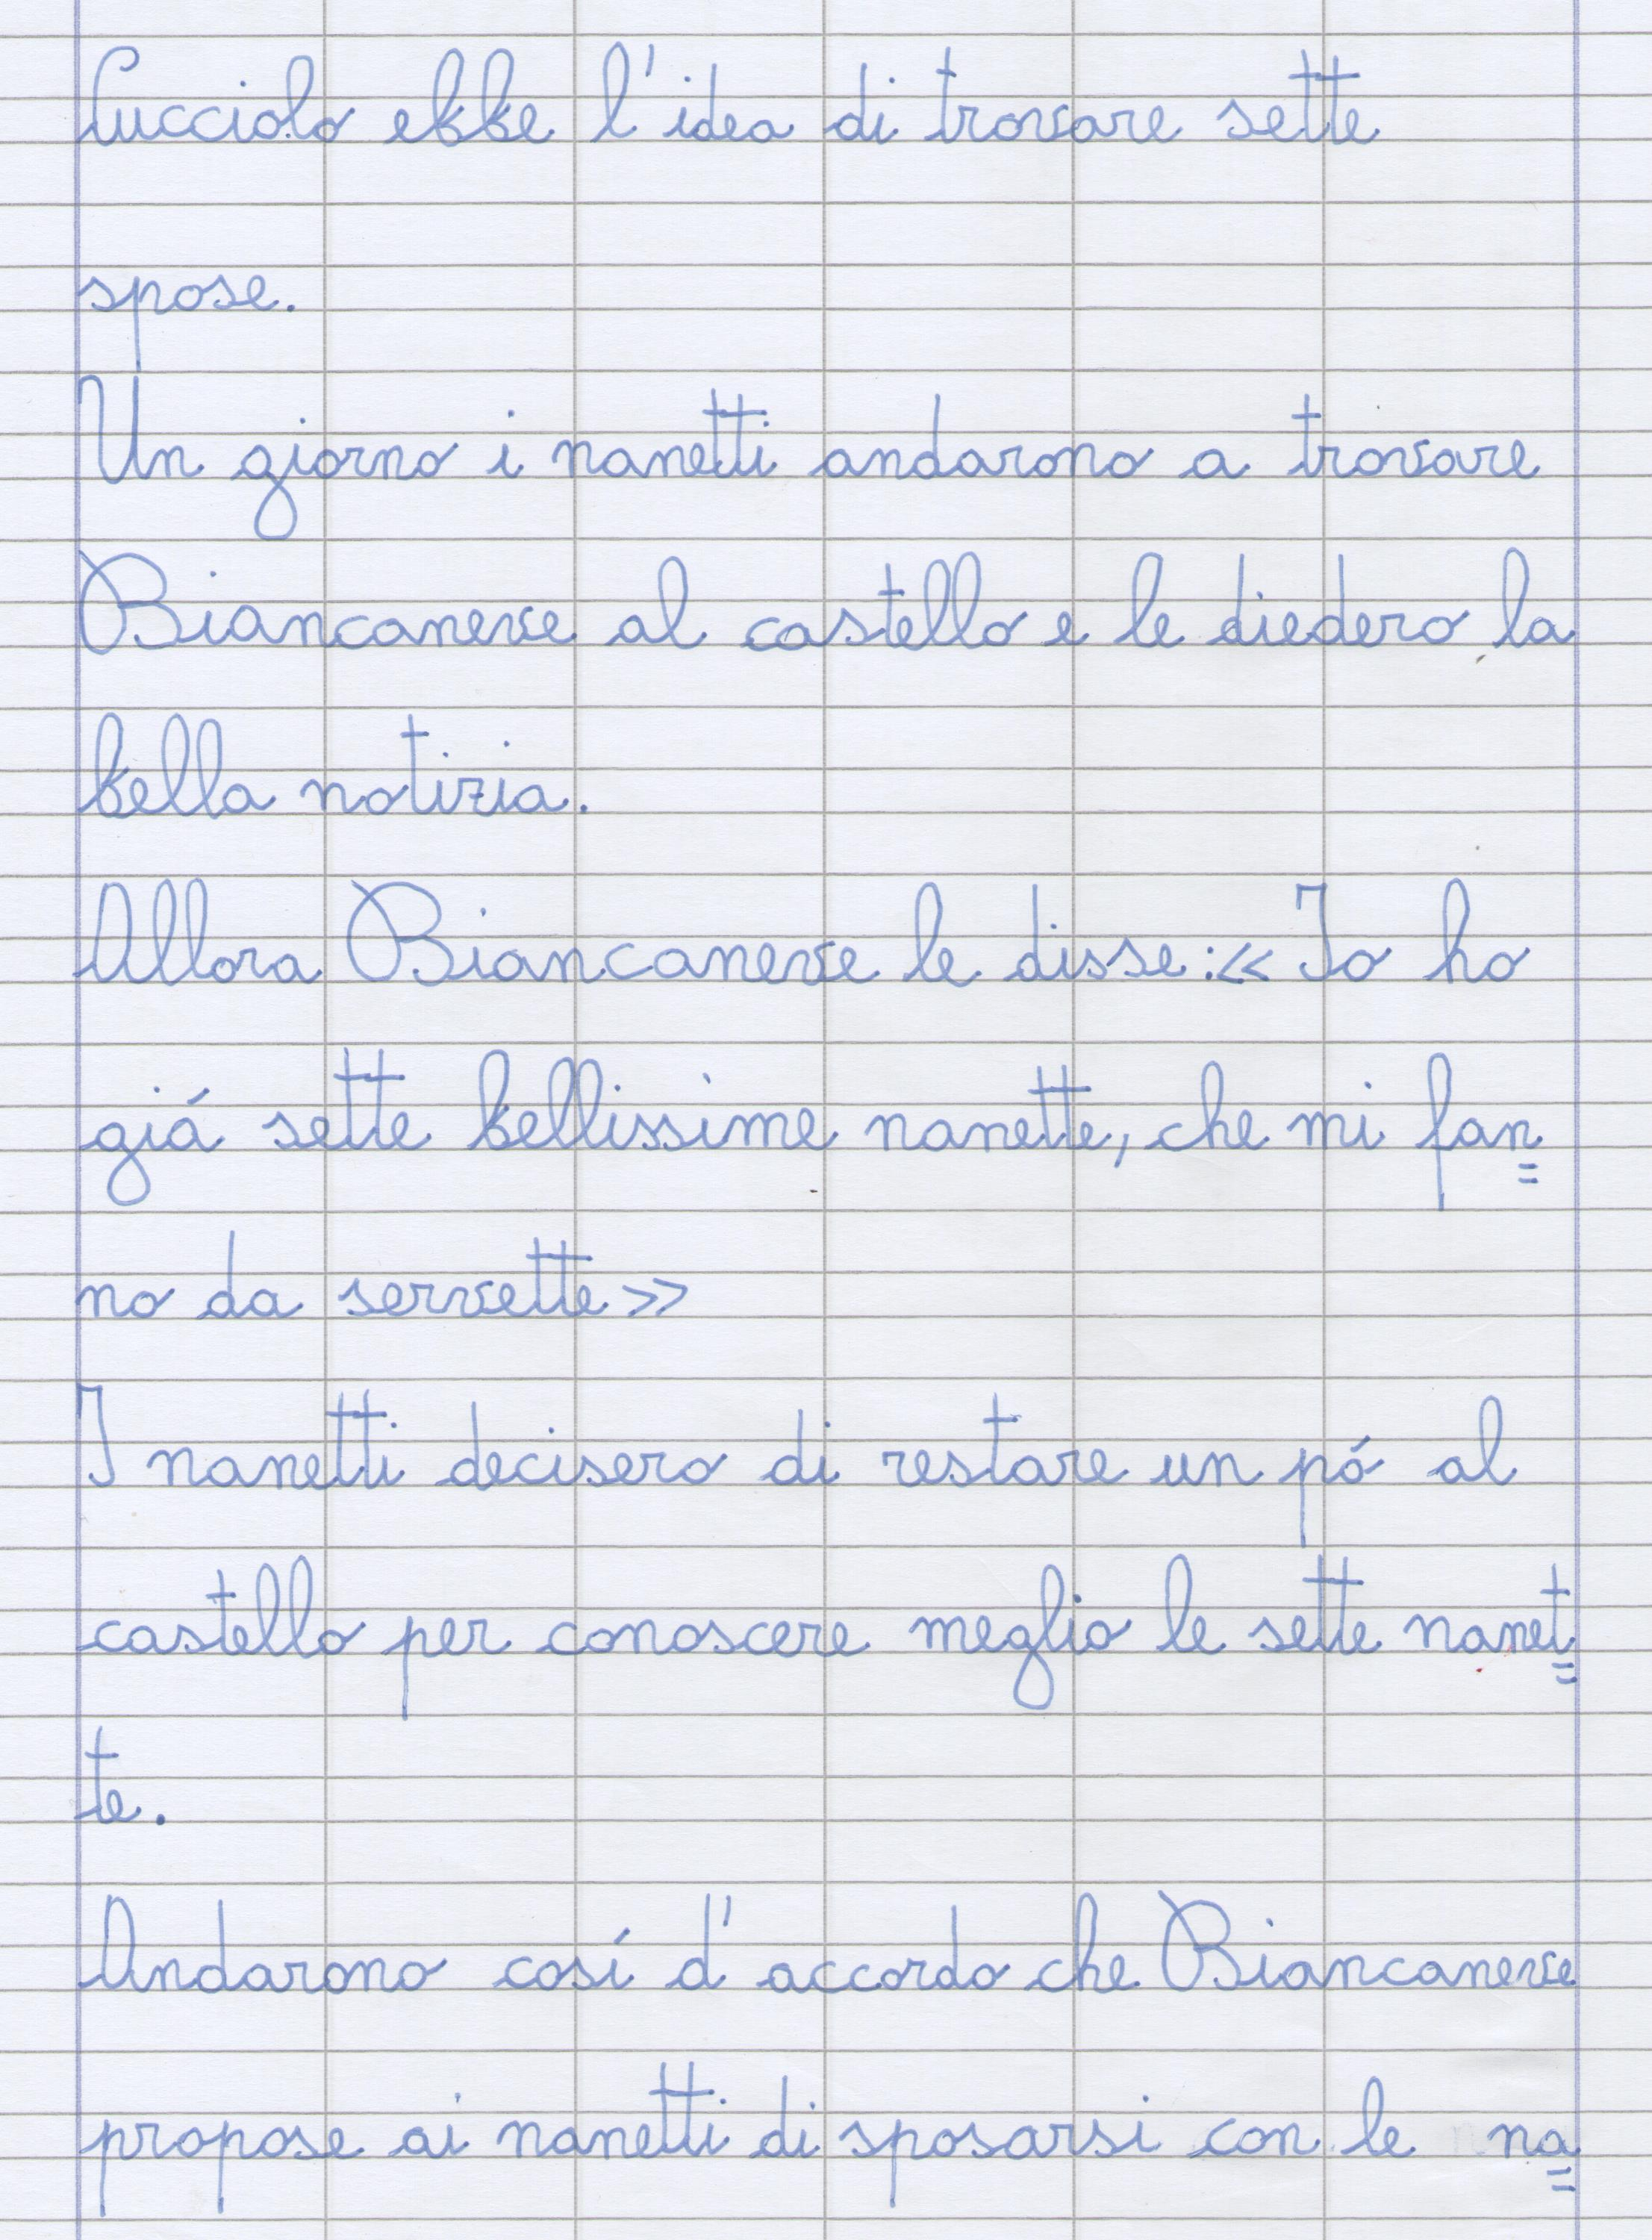 Cucciolo ebbe l'idea di trovare sette
spose.
Un giorno i nanetti andarono a trovare
Biancaneve al castello e le diedero la
bella notizia.
Allora Biancaneve le disse:« Io ho
giá sette bellissime nanette, che mi fan=
no da servette»
I nanetti decisero di restare un pó al
castello per conoscere meglio le sette nanet=
te.
Andarono cosí d'accordo che Biancaneve
propose ai nanetti di sposarsi con le na=